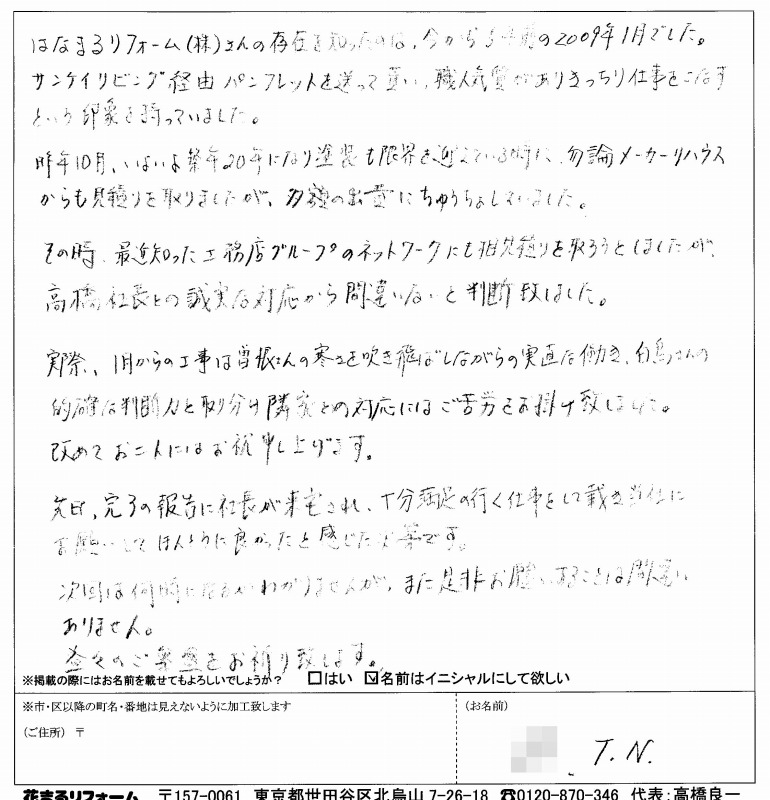 はなまるリフォーム(株)さんの存在を知ったのは、今から5年前の2009年1月でした。
サンケイリビング経由パンフレットを送って貰い、職人気質がありきっちり仕事をこなす
という印象を持っていました。
昨年10月、いよいよ築年20年になり塗装も限界を迎えている時に、勿論メーカーハウス
からも見積りを取りましたが、多額の出費にちゅうちょしていました。
その時、最近知った工務店グループのネットワークにも相見積りを取ろうとしましたが、
高橋社長との誠実な対応から間違いないと判断致しました。
実際、1月からの工事は曽根さんの寒さを吹き飛ばしながらの実直な働き、白鳥さんの
的確な判断力と取り分け隣家との対応にはご苦労をお掛け致しました。
改めてお二人にはお礼申し上げます。
先日、完了の報告に社長が来宅され、十分満足の行く仕事をして戴き当社に
お願いしてほんとうに良かったと感じた次第です。
次回は何時になるかわかりませんが、また是非お願いすることは間違い
ありません。
益々のご繁盛をお祈り致します。
※掲載の際にはお名前を載せてもよろしいでしょうか? □はい ☑名前はイニシャルにして欲しい
※市・区以降の町名・番地は見えないように加工致します
(ご住所) 〒
(お名前)
T.N.
花まるリフォーム 〒157-0061 東京都世田谷区北烏山7-26-18 ☎0120-870-346 代表:高橋良一